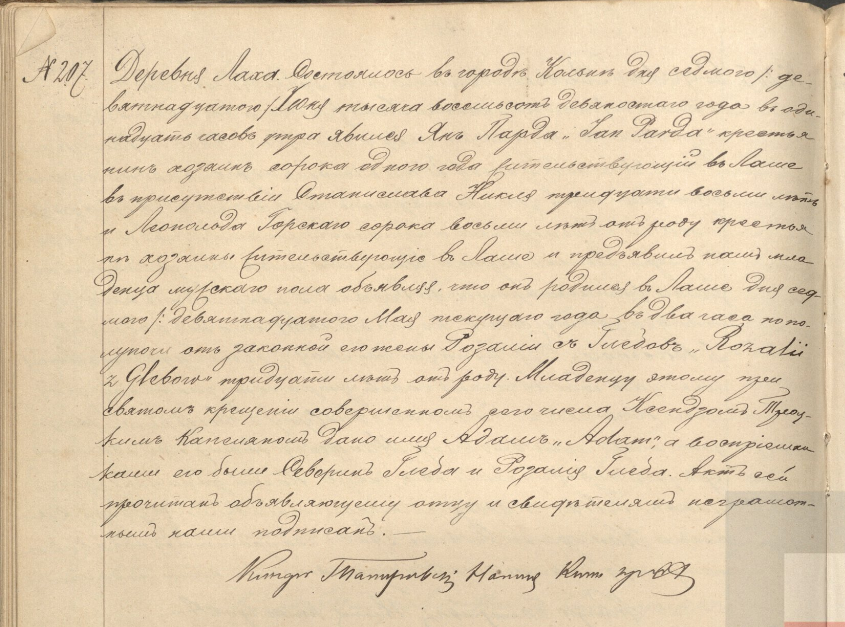 № 207
Деревня Лаха. Состоялось въ городѣ Кольнѣ дня седмого /: де-
вятнадцатого /: Юня тысяча восемьсотъ девяностаго года въ оди-
надцать часовъ утра явился Янъ Парда „Jan Parda" крестья
нинъ хозаинъ сорока одного года жительствующій въ Лаше
въ присутствіи Станислава Никля тридцати восьми лѣтъ
и Леопольда Горскаго сорока восьми лѣтъ отъ роду крестья
нъ хозаины жительствующіе въ Лаше и предъявилъ намъ мла
денца мужскаго пола объявляя, что онъ родился въ Лаше дня сед-
мого /: девятнадцатого Мая текущаго года въ два часа пополу
ночи отъ законной его жены Розаліи съ Глебовъ „Rozalii
z Glebow" тридцати лѣтъ отъ роду. Младенцу этому при
святомъ крещеніи совершенномъ сего числа Ксендзомъ
кимъ Капеляномъ дано имя Адамъ „Adam", а воспріемни
ками его были Северинъ Глеба и Розалія Глеба. Актъ сей
прочитанъ объявляющему отцу и свидѣтелямъ неграмот-
нымъ нами подписанъ. —
Ксендзъ